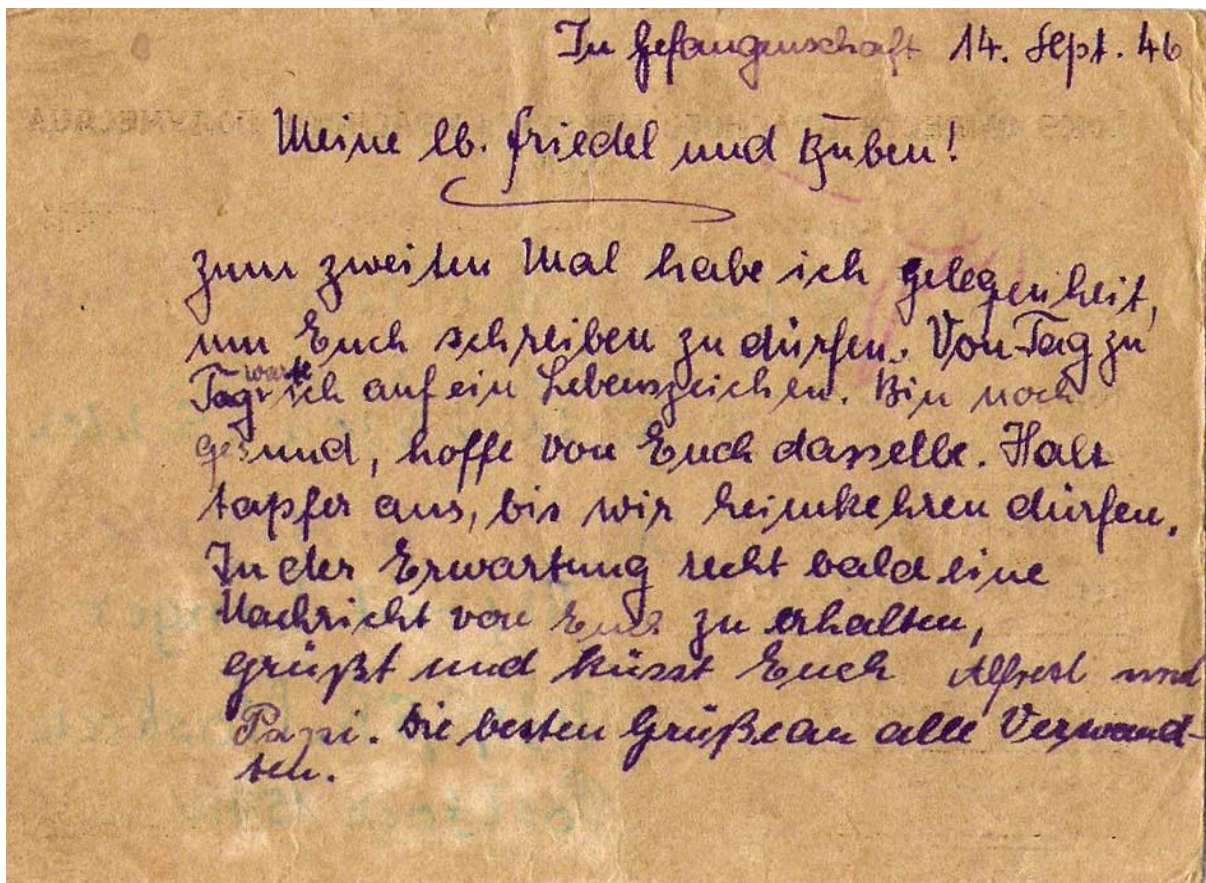 In Gefangenschaft 14. Sept. 46
Meine lb. Friedel und Buben!
Zum zweiten Mal habe ich Gelegenheit,
um Euch schreiben zu dürfen. Von Tag zu
Tag warte ich auf ein Lebenszeichen. Bin noch
gesund, hoffe von Euch dasselbe. Halt
tapfer aus, bis wir heimkehren dürfen.
In der Erwartung recht bald eine
Nachricht von Euch zu erhalten,
grüßt und küsst Euch Alfred und
Papi. Die besten Grüße an alle Verwand-
ten.